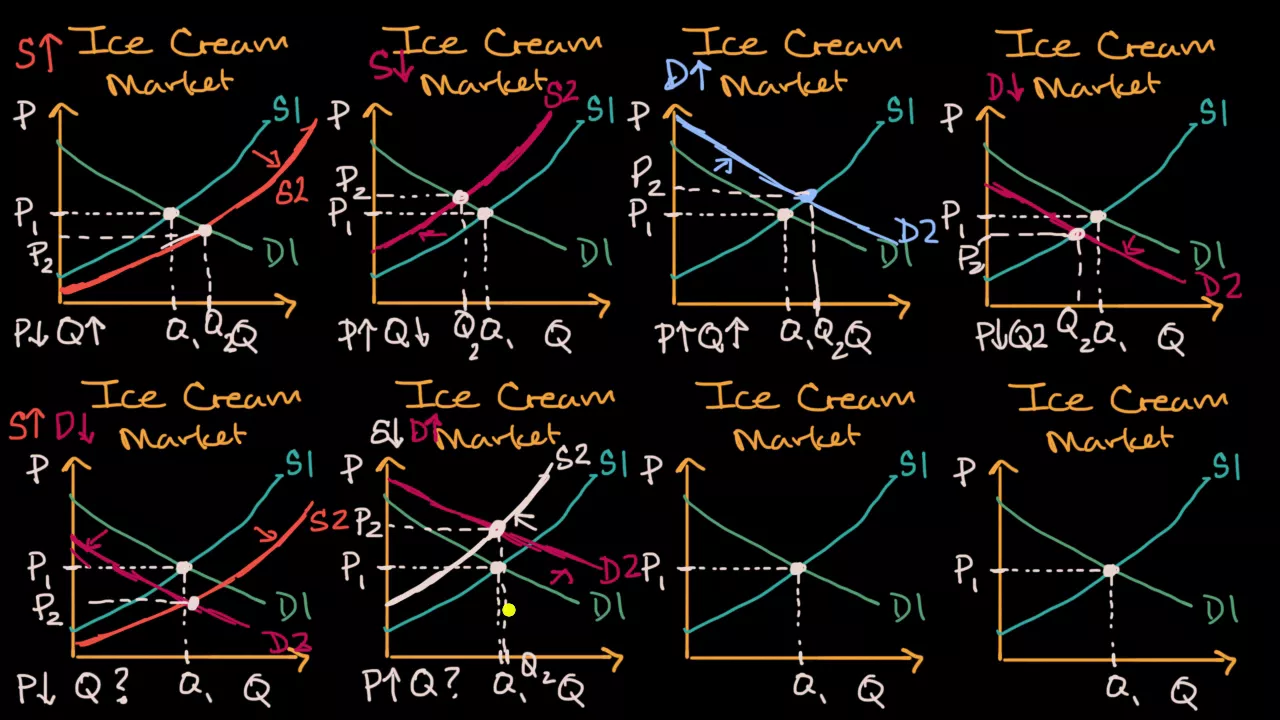 S↑ Ice Cream
Market
P S1
S2
P₁
P₂ D1
P↓ Q↑ Q₁ Q₂ Q
S↓ Ice Cream
Market
P S2 S1
P₂
P₁
D1
P↑ Q↓ Q₂ Q₁ Q
D↑ Ice Cream
Market
P S1
P₂
P₁
D1 D2
P↑Q↑ Q₁ Q₂ Q
D↓ Ice Cream
Market
P S1
P₁
P₂ D1
D2
P↓Q2 Q₂ Q₁ Q
S↑ D↓ Ice Cream
Market
P S1
S2
P₁
P₂ D1
D2
P↓ Q? Q₁ Q
S↓ D↑ Ice Cream
Market
P S2 S1
P₂
P₁ D2
D1
P↑ Q? Q₁ Q₂ Q
Ice Cream
Market
P S1
P₁
D1
Q₁ Q
Ice Cream
Market
P S1
P₁
D1
Q₁ Q